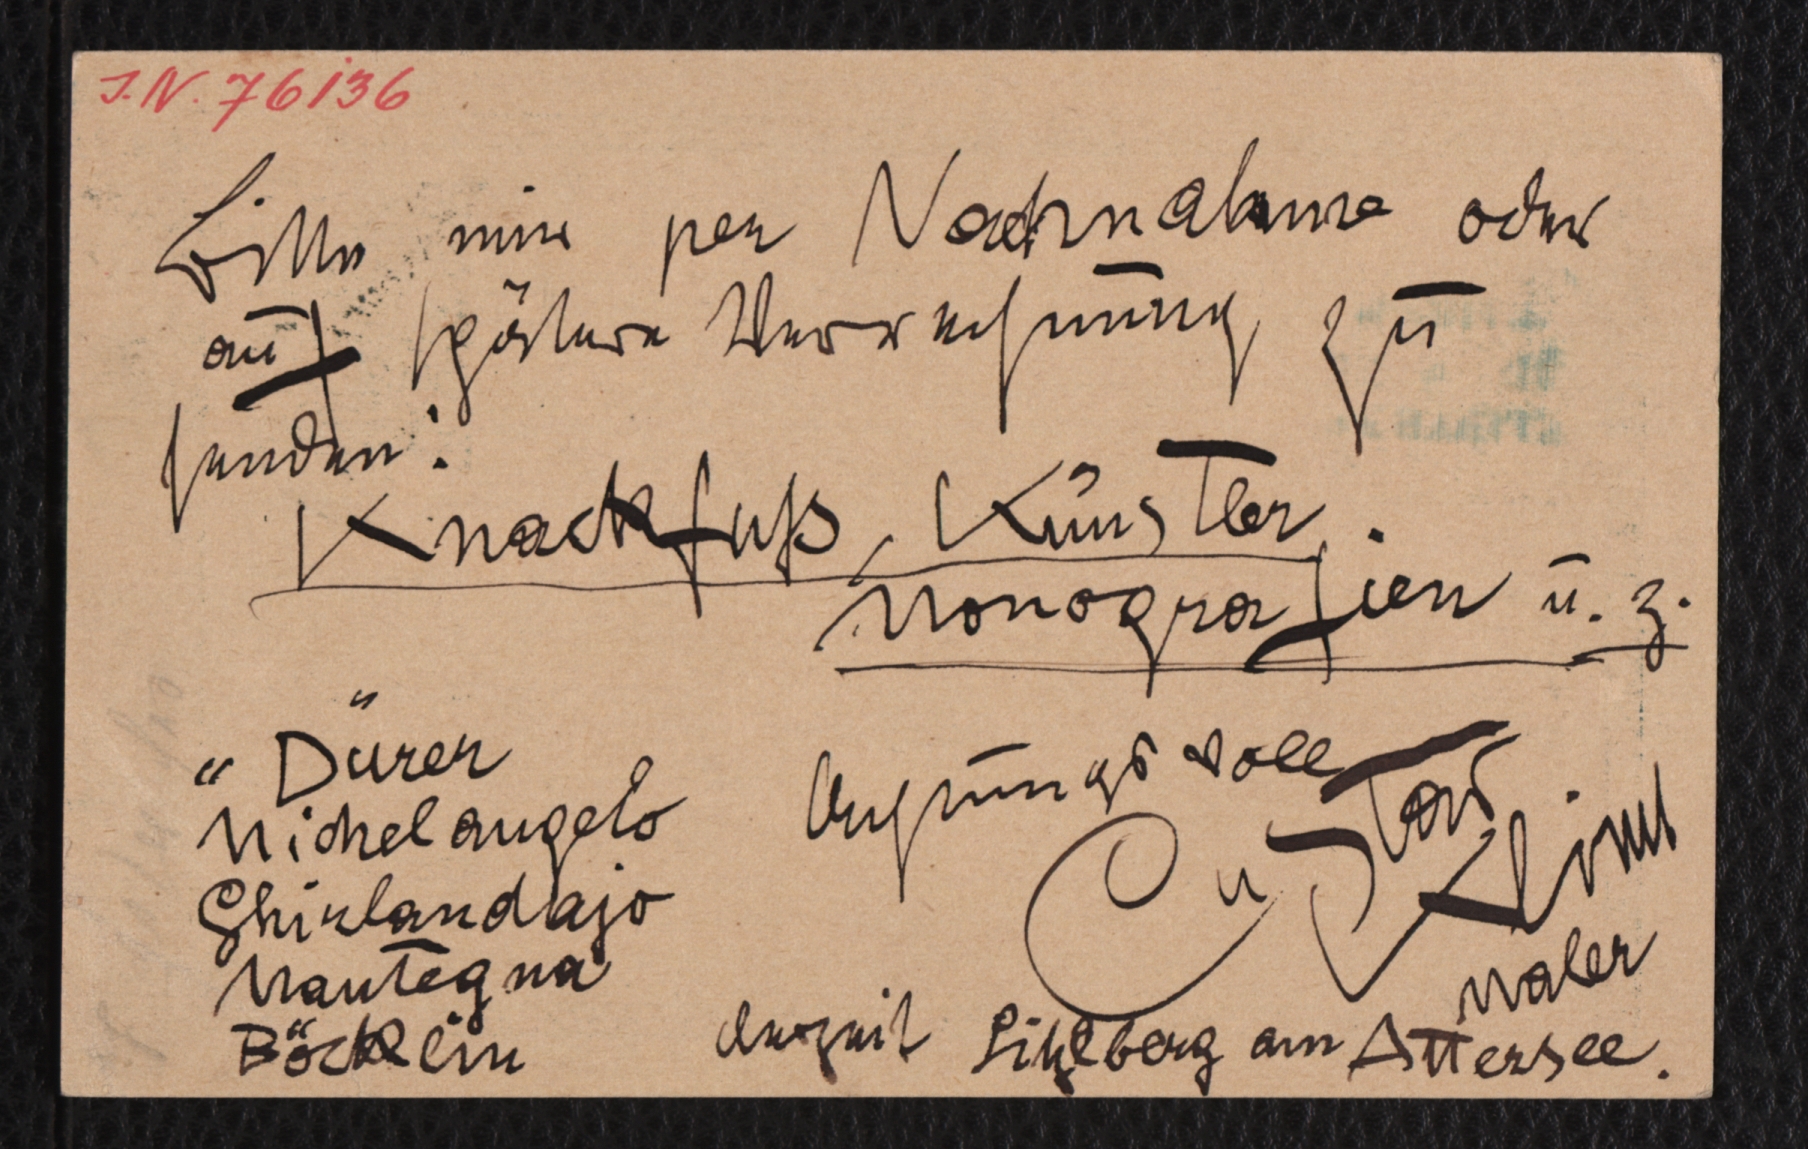 I.N. 76136
Bitte mir per Nachnahme oder
auf spätere Verrechnung zu
senden:
Knackfuß, Künstler
Monografien u. z.
" Dürer
Michelangelo
Ghirlandajo
Mantegna
Böcklin
Achtungsvoll
Gustav
Klimt
Maler
derzeit Litzlberg am Attersee.